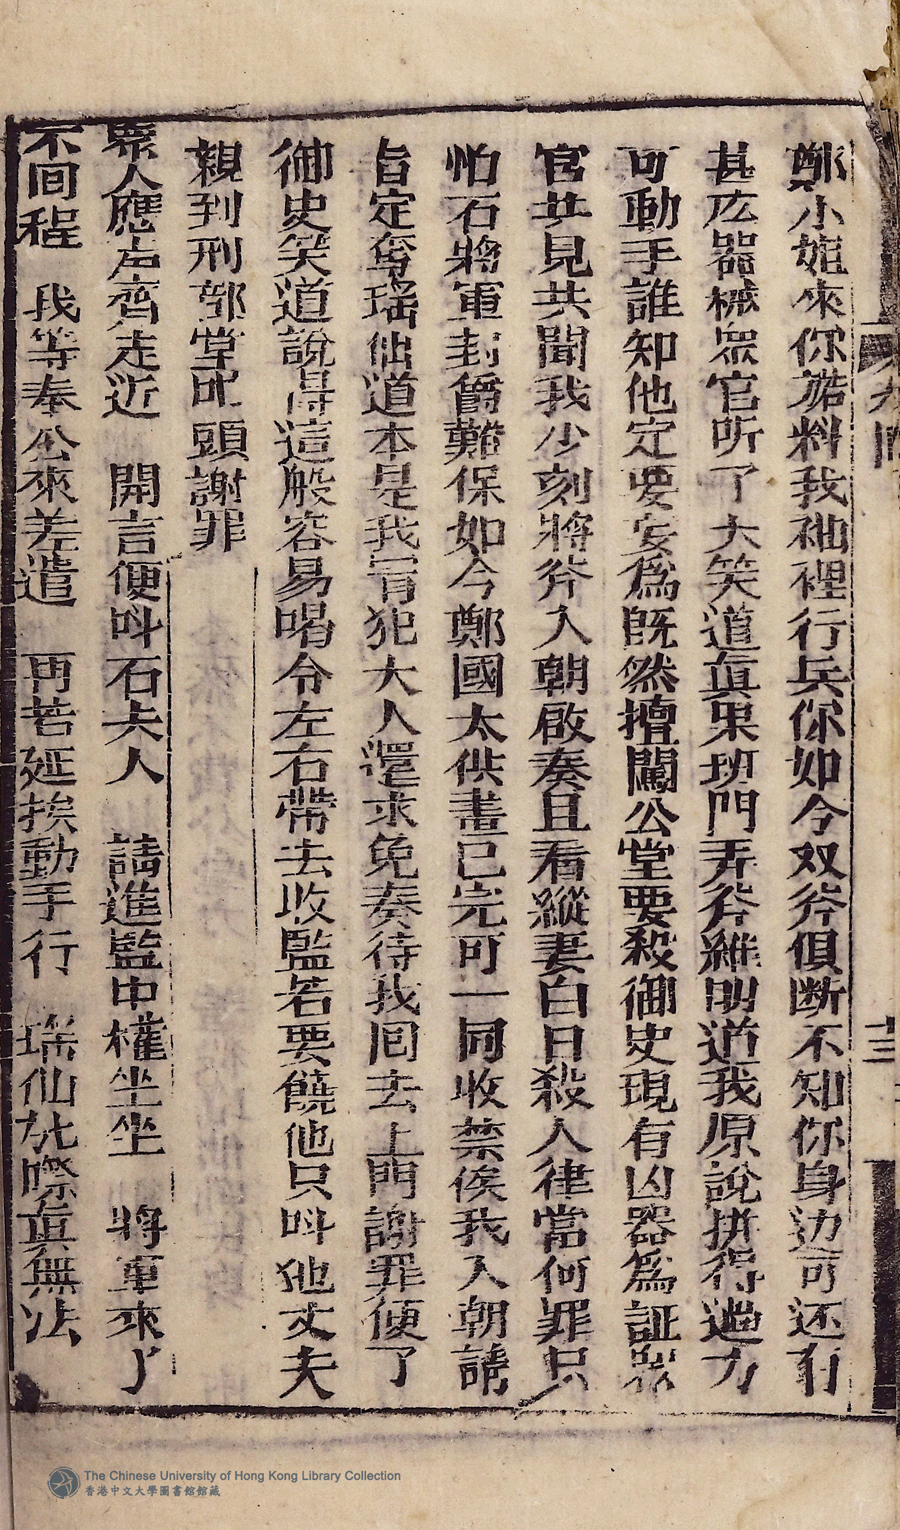 鄭小姐來你誥料我袖裡行兵你如今双斧俱断不知你身边可还有
甚庅器械众官听了大笑道真果班門弄斧維明道我原說拼得過力
可動手誰知他定要妄為既然擅闖公堂要殺御史現有凶器為証眾
官共見共聞我少刻將斧入朝啟奏且看縱妻白日殺人律當何罪只
怕石將軍封爵難保如今鄭國太供畫已完可一同收禁俟我入朝請
旨定奪瑶仙道本是我冐犯大人還求免奏待我囘去上門謝罪便了
御史笑道說得這般容易喝令左右帶去收監若要饒他只叫他丈夫
親到刑部堂叩頭謝罪
眾人應声齊走近 開言便叫石夫人 請進監中權坐坐 將軍來了
不間程 我等奉公來差遣 再若延挨動手行 瑞仙此際真無法
十三
The Chinese University of Hong Kong Library Collection
香港中文大學圖書館館藏